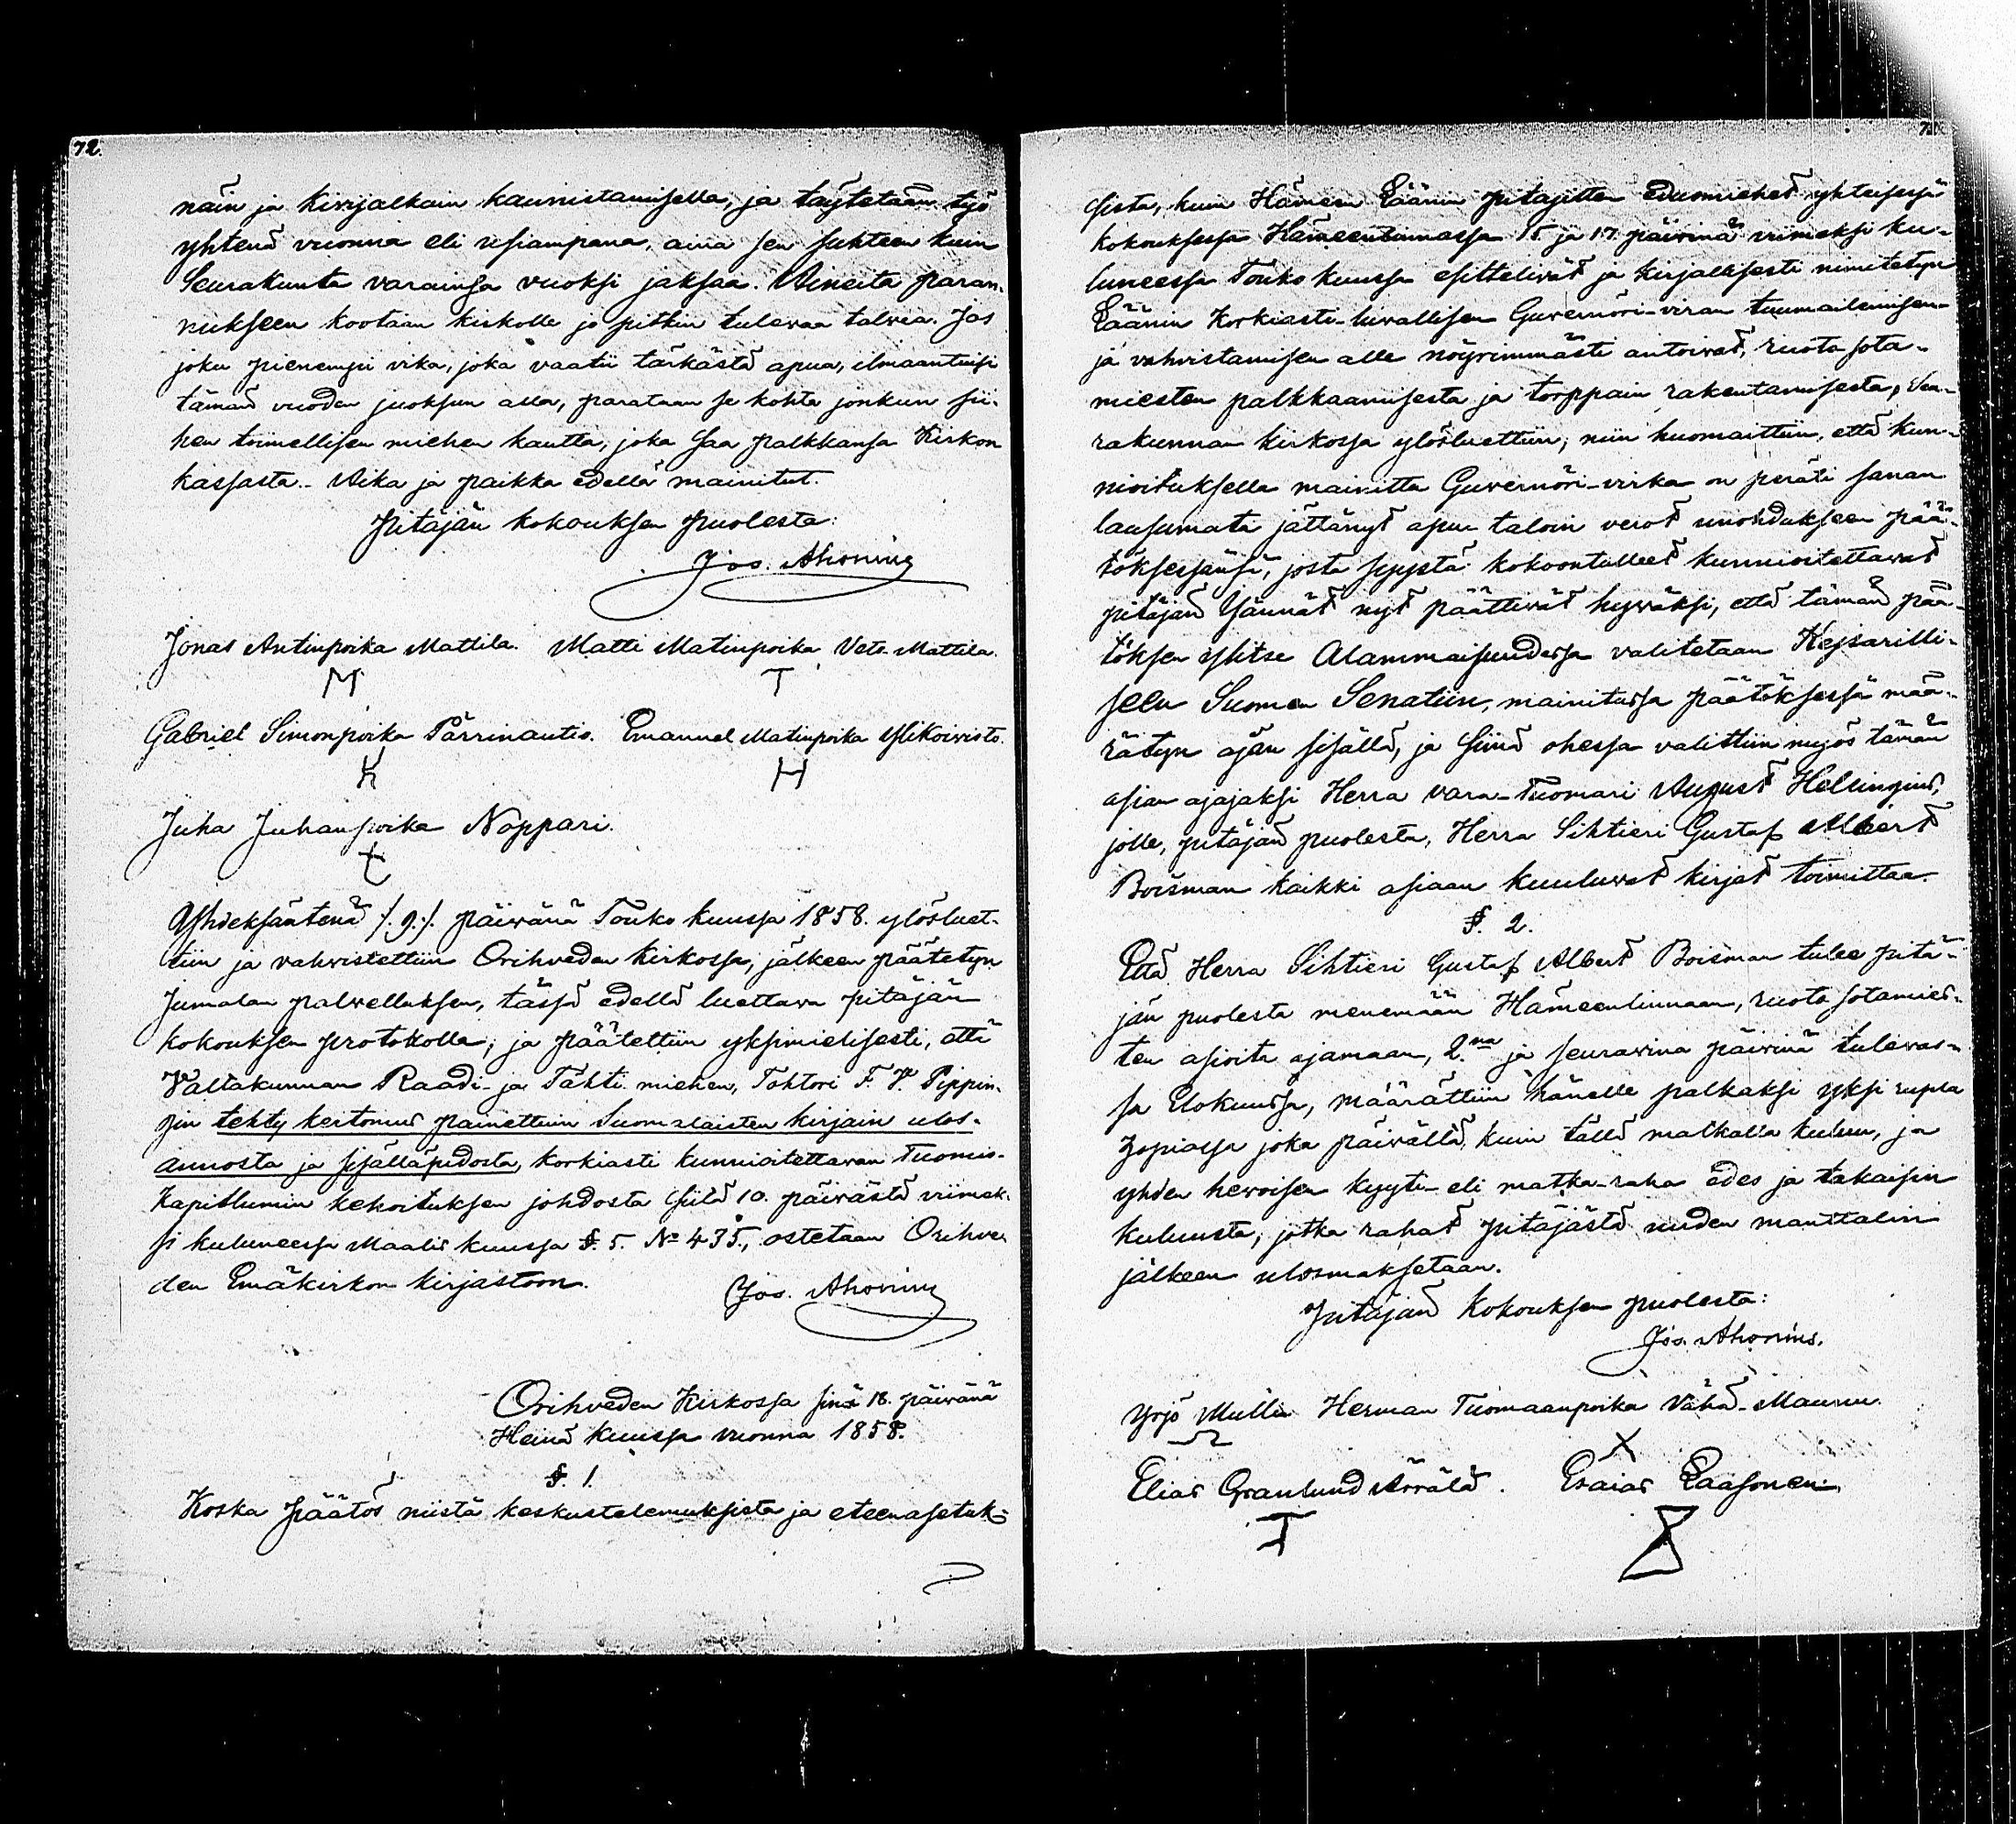 72.
näin ja kivijalkain kaunistamisella, ja täytetään työ
yhtenä vuonna eli usiampana, aina sen suhteen kuin
Seurakunta varainsa vuoksi jaksaa. Aineita paran-
nukseen kootaan kirkolle jo pitkin tulevaa talvea. Jos
joku pienempi vika, joka vaatii tärkästä apua, ilmaantuisi
tämän vuoden juoksun alla, parataan se kohta jonkun sii-
hen toimellisen miehen kautta, joka saa palkkansa Kirkon
kassasta. Aika ja paikka edellä mainitut.
Pitäjän kokouksen puolesta:
Jos. Ahonius
Jonas Antinpoika Mattila. Matti Matinpoika Vete-Mattila.
Gabriel Simonpoika Pärrinautio. Emanuel Matinpoika Ylikoivisto.
Juha Juhanpoika Noppari.
Yhdeksäntenä /:9:/ päivänä Touko kuussa 1858. ylösluet-
tiin ja vahvistettiin Orihveden Kirkossa, jälkeen päätetyn
Jumalan palvelluksen, tässä edellä luettava pitäjän
kokouksen protokolla; ja päätettiin yksimielisesti, että
Valtakunnan Raadi- ja Tähti-miehen, Tohtori F. V. Pippin-
gin tehty kertomus painettuin Suomalaisten kirjain ulos-
annosta ja sisälläpidosta, korkiasti kunnioitettavan Tuomio-
Kapitlumin kehoituksen johdosta siitä 10. päivästä viimek-
si kuluneessa Maalis kuussa §. 5. No 435., ostetaan Orihve-
den Emäkirkon kirjastoon.
Jos. Ahonius
Orihveden Kirkossa sinä 18. päivänä
Heinä kuussa vuonna 1858.
§. 1.
Koska Päätös niistä keskustelemuksista ja eteenasetuk-
sista, kuin Hämeen Läänin pitäjitten edusmiehet yhteisessä
kokouksessa Hämeenlinnassa 15. ja 17. päivinä viimeksi ku-
luneessa Touko kuussa esittelivät ja kirjallisesti nimitetyn
Läänin Korkiasti-luvallisen Guvernöri-viran tuumailemisen-
ja vahvistamisen alle nöyrimmästi antoivat, ruota sota-
miesten palkkaamisesta ja torppain rakentamisesta, Seu-
rakunnan kirkossa ylösluettiin; niin huomaittiin, että kun-
nioituksella mainitta Guvernöri-virka on peräti sanan
lausumata jättänyt apu taloin verot unohdukseen pää-
töksessänsä, josta syystä kokoontulleet kunnioitettavat
pitäjän Isännät nyt päättivät hyväksi, että tämän pää-
töksen ylitse Alammaisuudessa valitetaan Kejsarilli-
seen Suomen Senatiin, mainitussa päätöksessä mää-
rätyn ajan sisällä, ja siinä ohessa valittiin myös tämän
asian ajajaksi Herra vara-Tuomari August Helsingius,
jolle, pitäjän puolesta, Herra Sihtieri Gustaf Albert
Boisman kaikki asiaan kuuluvat kirjat toimittaa.
§. 2.
Että Herra Sihtieri Gustaf Albert Boisman tulee pitä-
jän puolesta menemään Hämeenlinnaan, ruota sotamies-
ten asioita ajamaan, 2.na ja seuravina päivinä tulevas-
sa Elokuussa, määrättiin hänelle palkaksi yksi rupla
hopiassa joka päivältä, kuin tällä matkalla kuluu, ja
yhden hevoisen kyyti- eli matka-raha edes ja takaisin
kuluusta, jotka rahat pitäjästä uuden manttalin
jälkeen ulosmaksetaan.
Pitäjän Kokouksen puolesta:
Jos. Ahonius.
Yrjö Mulli Herman Tuomaanpoika Vähä-Maunu
Elias Granlund Ärrälä. Esaias Laasonen.